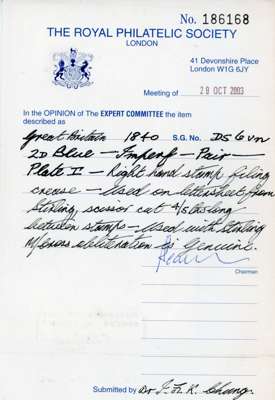 No. 186168
THE ROYAL PHILATELIC SOCIETY
LONDON
41 Devonshire Place
London W1G 6JY
Meeting of 28 OCT 2003
In the OPINION of The EXPERT COMMITTEE the item
described as
Great Britain 1840 S.G. No. DS6
2D Blue – Imperf – Pair –
Plate I – Right hand stamp filing
crease – Used on lettersheet from
Stirling, scissor cut
between stamps – Used with Stirling
M/Cross obliteration is Genuine.
Chairman
Submitted by Dr